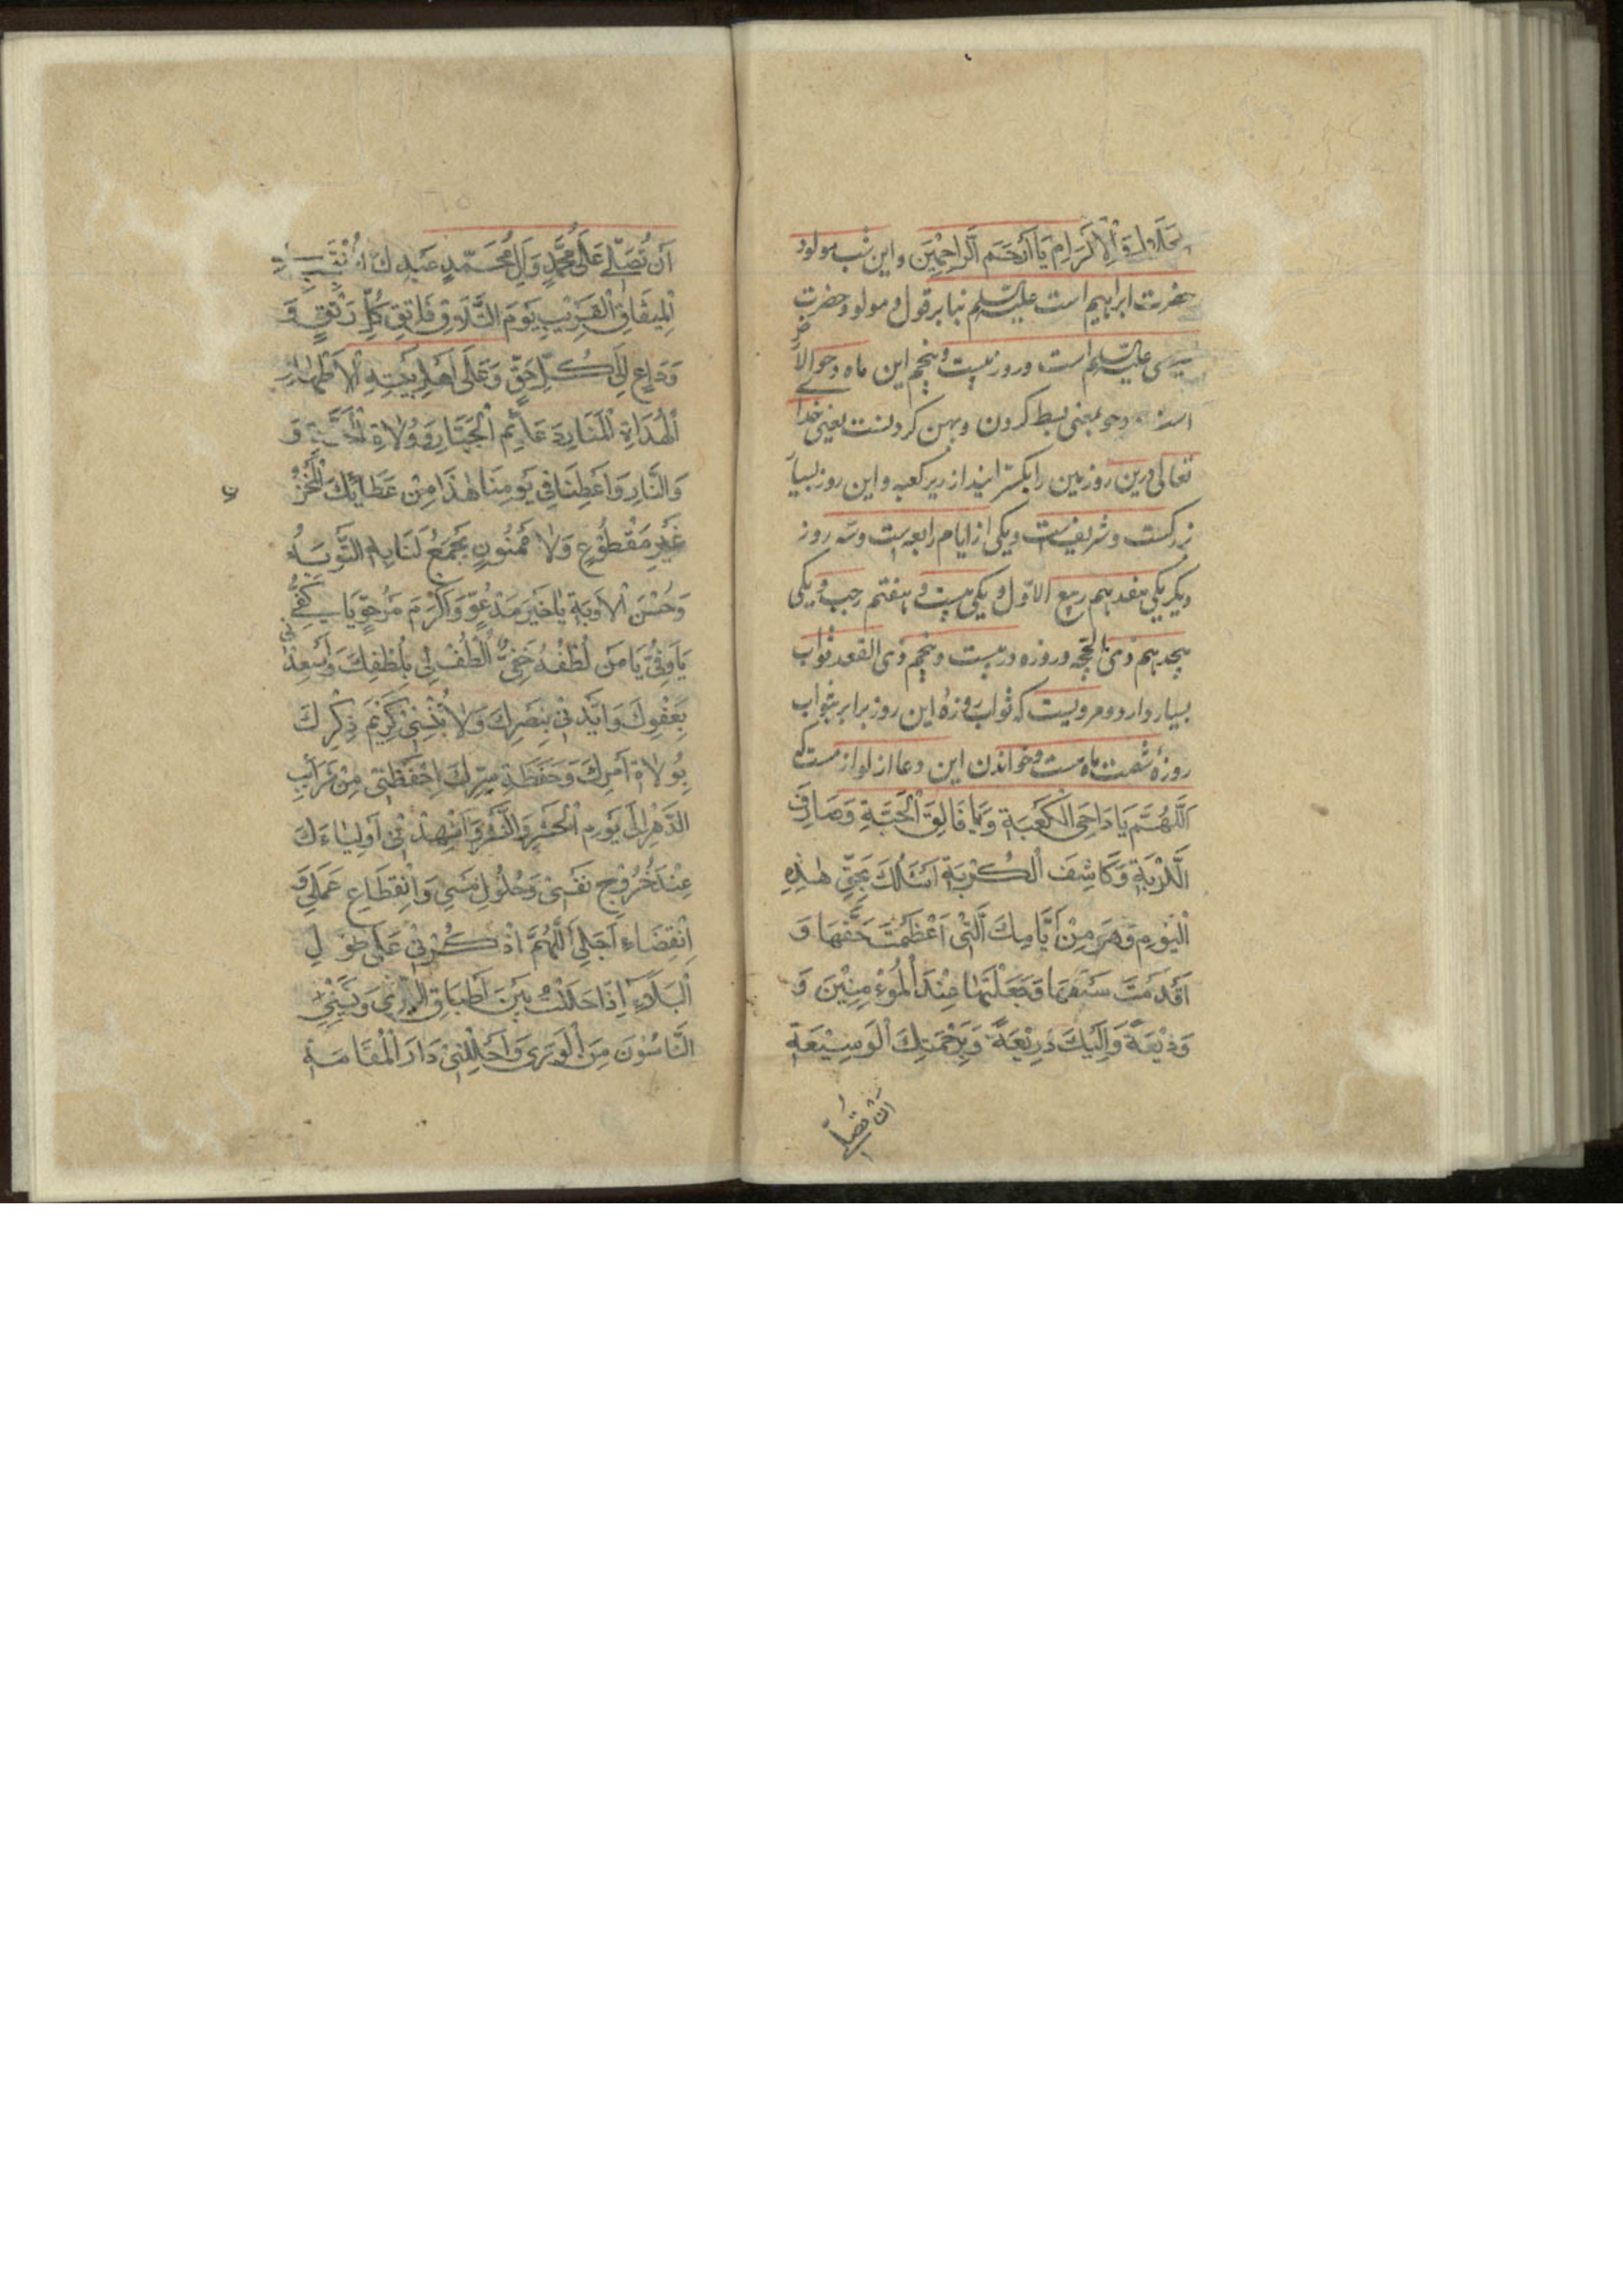 الجلال والاكرام يا ارحم الراحمين و این شب مولود
حضرت ابراهیم است علیه السلم بنا بر قول و مولود حضرت
عیسی علیه السلم است و روز بیست و پنجم این ماه دحو الارض
است و دحو بمعنی بسط کردن و پهن کردنست یعنی خدا
تعالی درین روز زمین را بکسترانید از زیر کعبه و این روز بسیا
بزرکست و شریفست و یکی از ایام رابعه است و سه روز
دیکر یکی هفدهم ربیع الاول و یکی بیست و هفتم رجب و یکی
هجدهم ذی الحجه و روزه در بیست و پنجم ذی القعد ثواب
بسیار وارد و مرویست که ثواب روزهٔ این روز برابر بثواب
روزهٔ شصت ماه است و خواندن این دعا از لوازمست که
اَللّهُمَّ يَا دَاحِىَ الْكَعْبَةِ وَيَا فَالِقَ الْحَبَّةِ وَصَارِفَ
اللَّزْبَةِ وَكَاشِفَ الْكُرْبَةِ اَسْئَلُكَ بِحَقِّ هٰذِهِ
الْيَوْمِ وَهِىَ مِنْ اَيَّامِكَ الَّتِى اَعْظَمْتَ حَقَّهَا وَ
اَقْدَمْتَ سَبْقَهَا وَجَعَلْتَهَا عِنْدَ الْمُؤْمِنِيْنَ وَ
وَدِيْعَةً وَاِلَيْكَ ذَرِيْعَةً وَبِرَحْمَتِكَ الْوَسِيْعَةِ
ان تصلی
اَنْ تُصَلِّىَ عَلٰى مُحَمَّدٍ وَاٰلِ مُحَمَّدٍ عَبْدِكَ الْمُنْتَجَبِ فِى
الْمِيثَاقِ الْقَرِيْبِ يَوْمَ التَّلَاقِ فَاتِقِ كُلِّ رَتْقٍ وَ
وَدَاعٍ اِلٰى كُلِّ حَقٍّ وَعَلٰى اَهْلِ بَيْتِهِ الْاَطْهَارِ
الْهُدَاةِ الْمَنَارِ دَعَائِمِ الْجَبَّارِ وَوُلَاةِ الْجَنَّةِ وَ
وَالنَّارِ وَاَعْطِنَا فِى يَوْمِنَا هٰذَا مِنْ عَطَائِكَ الْمَخْزُ
ون
غَيْرَ مَقْطُوْعٍ وَلَا مَمْنُونٍ تَجْمَعُ لَنَا بِهِ التَّوْبَةَ
وَحُسْنَ الْاَوْبَةِ يَا خَيْرَ مَدْعُوٍّ وَاَكْرَمَ مَرْجُوٍّ يَا كَفِىُّ
يَا وَفِىُّ يَا مَنْ لُطْفُهُ خَفِىٌّ اُلْطُفْ لِى بِلُطْفِكَ وَاَسْعِدْنِى
بِعَفْوِكَ وَاَيِّدْنِى بِنَصْرِكَ وَلَا تُنْسِنِى كَرِيْمَ ذِكْرِكَ
بِوُلَاةِ اَمْرِكَ وَحَفَظَةِ سِرِّكَ اِحْفَظْنِى مِنْ شَوَائِبِ
الدَّهْرِ اِلٰى يَوْمِ الْحَشْرِ وَالنَّشْرِ وَاَشْهِدْنِى اَوْلِيَاءَكَ
عِنْدَ خُرُوْجِ نَفْسِى وَحُلُوْلِ رَمْسِى وَانْقِطَاعِ عَمَلِى وَ
اِنْقِضَاءِ اَجَلِى اَللّٰهُمَّ اذْكُرْنِى عَلٰى طُوْلِ
الْبَلَاءِ اِذَا حَلَلْتُ بَيْنَ اَطْبَاقِ الثَّرٰى وَنَسِيَنِى
النَّاسُوْنَ مِنَ الْوَرٰى وَاَحْلِلْنِى دَارَ الْمُقَامَةِ